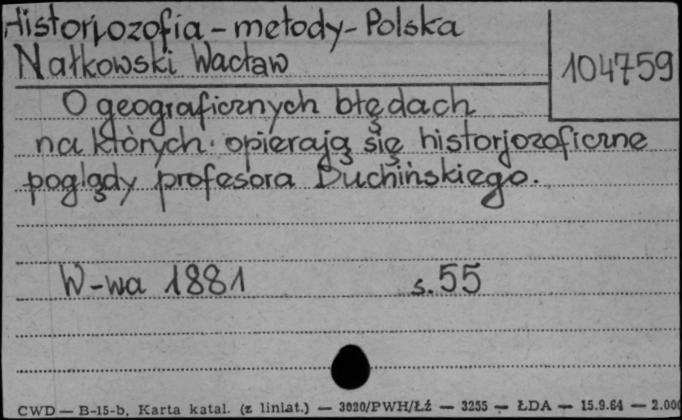 Historjozofia - metody - Polska
Nałkowski Wacław
104759
O geograficznych błędach
na których opierają się historjozoficzne
poglądy profesora Duchińskiego.
W-wa 1881 s. 55
CWD — B-15-b, Karta katal. (z liniat.) — 3020/PWH/Łź — 3255 — ŁDA — 15.9.64 — 2.000